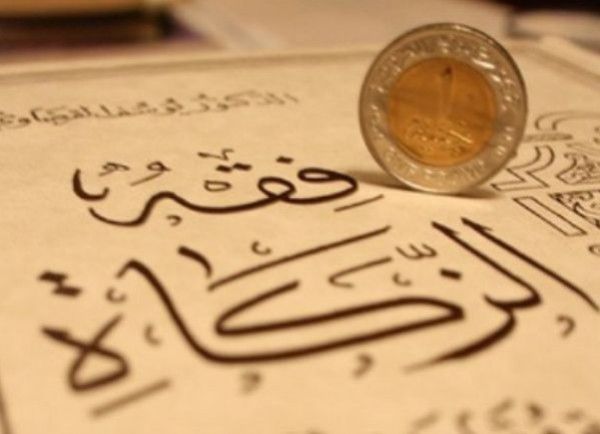 الدكتور يوسف القرضاوي
فِقْهُ
الزَّكَاةِ